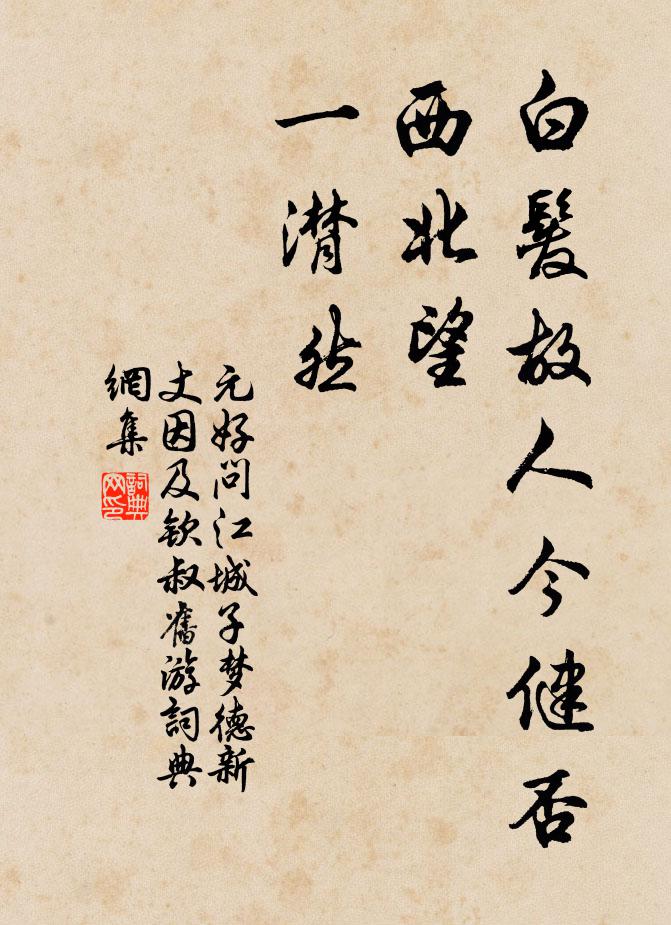 白髮故人今健否
西北望
一潸然
元好問江城子梦德新
丈因及欽叔舊游詞典
網集
詞典
网印